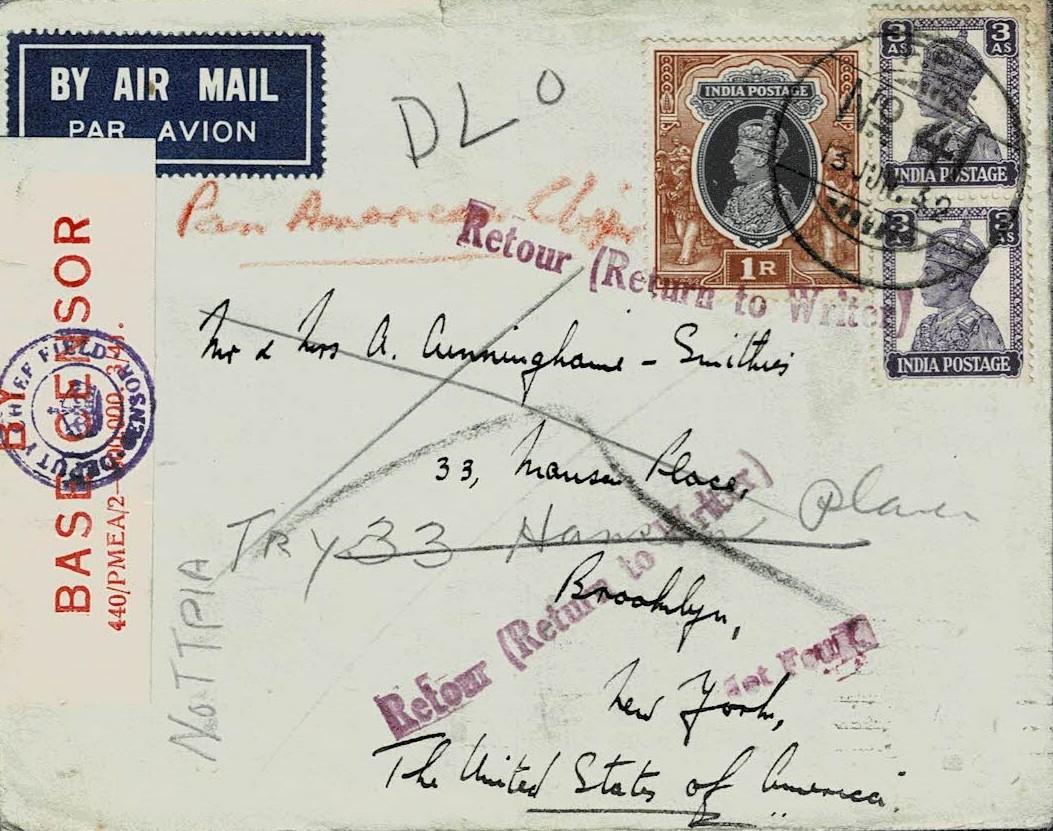 BY AIR MAIL
PAR AVION
DLO
INDIA POSTAGE
1 R
3 AS
3 AS
INDIA POSTAGE
3
3 AS
INDIA POSTAGE
No
13 JUN. 42
Pan American
Retour (Return to Writer)
BY
BASE CENSOR
440/PMEA/2—
3/41.
CHIEF FIELD CENSOR
DEPUTY
Mr & Mrs A. Cunninghame - Smithies
33, Place,
TRY 33 Place
Brooklyn,
Retour (Return to Writer)
Not Found
New York,
The United States of America.